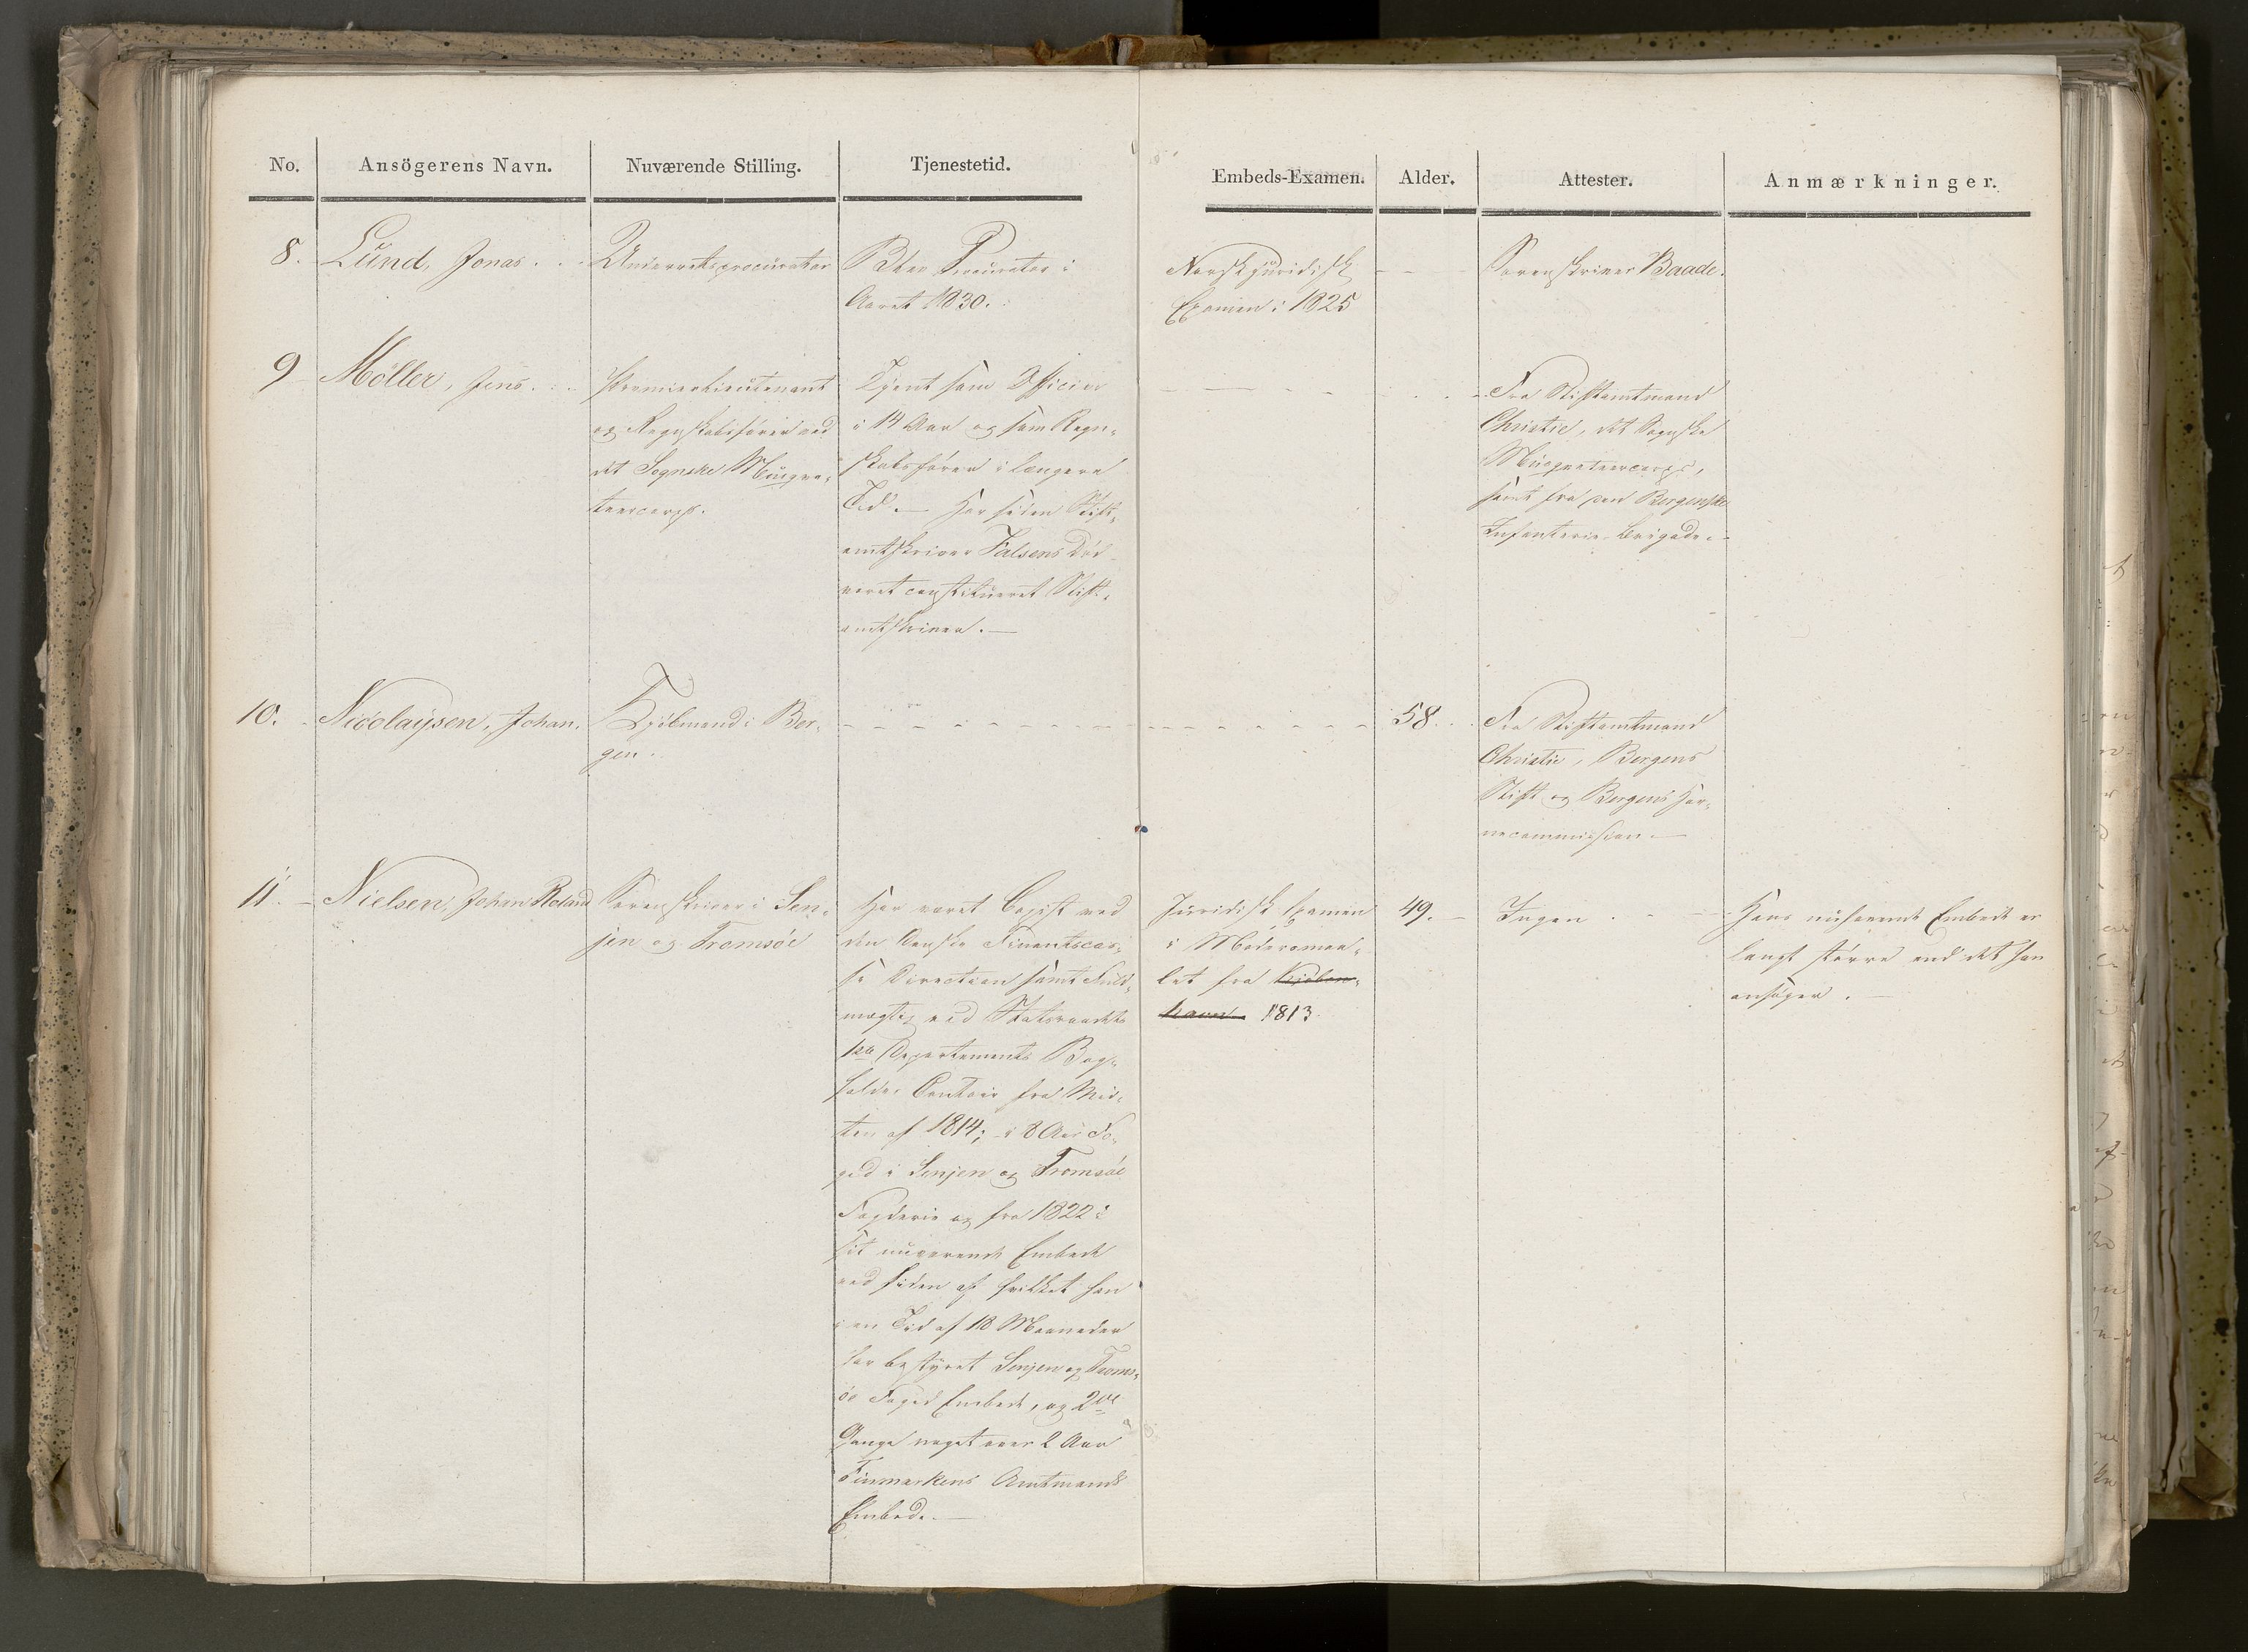 No.
Ansögerens Navn.
Nuværende Stilling.
Tjenestetid.
Embeds-Examen.
Alder.
Attester.
Anmærkninger.
8.
Lund, Jonas
Underretsprocurator
Blev Procurator i
Aaret 1830.
Norsk juridisk
Examen i 1825
Sorenskriver Baade.
9
Möller, Jens
Premierlieutenant
og Regnskabsförer ved
det Sognske Musque-
teercorps.
Tjent som Officier
i 14 Aar og som Regn-
skabsförer i længere
Tid. Har siden Stift-
amtskriver Falsens Död
været constitueret Stift-
amtskriver.
Fra Stiftamtmand
Christie, det Sognske
Musqueteercorps,
samt fra den Bergenske
Infanterie-Brigade.
10.
Nicolaysen, Johan.
Kjöbmand i Ber-
gen.
58
Fra Stiftamtmand
Christie, Bergens
Stift og Bergens Hav-
necommission.
11.
Nielsen, Johan Roland
Sorenskriver i Sen-
jen og Tromsöe
Har været Copist ved
den Danske Finantscas-
se Direction samt Fuld-
mægtig ved Statsraadets
Departements Bog-
holder Contoir fra Mid-
ten af 1814; i 8 Aar Fo-
ged i Senjen og Tromsöe
Fogderie og fra 1822 i
sit nuværende Embede
ved Siden af hvilket han
i en Tid af 18 Maaneder
har bestyret Senjen og Troms-
öe Foged Embede, og 2de
Gange noget over 2 Aar
Finmarkens Amtmands
Embede.
Juridisk Examen
i Modersmaa-
let fra Kjöben-
havn 1813.
49.
Ingen
Hans nuhavende Embede er
langt större end det han
ansöger.